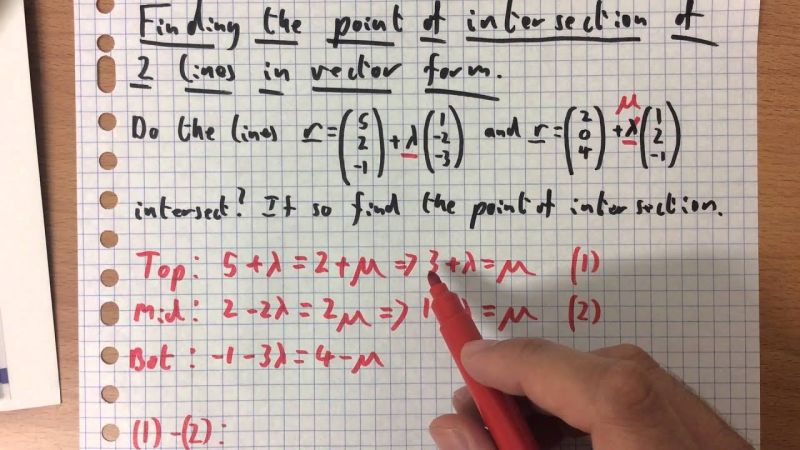 Finding the point of intersection of
2 lines in vector form.
Do the lines r = (5 2 -1) + λ (1 -2 -3) and r = (2 0 4) + λ μ (1 2 -1)
intersect? If so find the point of intersection.
Top: 5 + λ = 2 + μ => 3 + λ = μ (1)
Mid: 2 - 2λ = 2μ => 1 = μ (2)
Bot: -1 - 3λ = 4 - μ
(1) - (2):